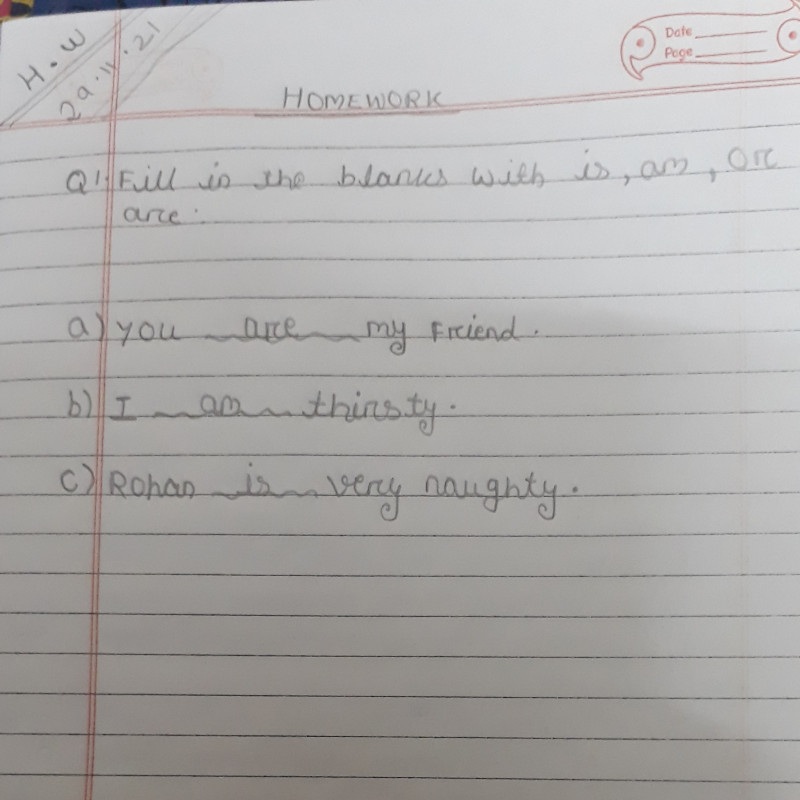 H.W
29.11.21
Date
Page
HOMEWORK
Q1 Fill in the blanks with is, am, or
are.
a) you are my Friend.
b) I am thirsty.
c) Rohan is very naughty.